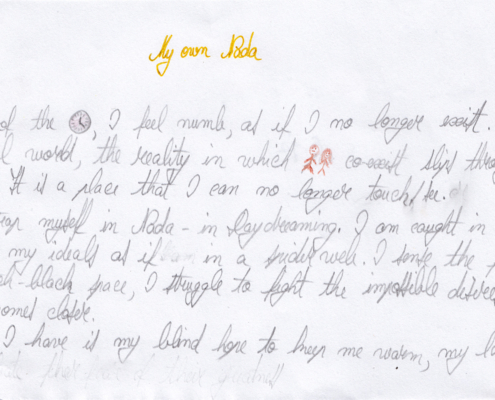 My own Nada
of the , I feel numb, as if I no longer exist.
l world, the reality in which co-exist slips throu
It is a place that I can no longer touch/see.
trap myself in Nada - in Daydreaming. I am caught in
my ideals as if in a spiderweb. I sense the
ch-black space, I struggle to fight the impossible
omes closer.
I have is my blind hope to keep me warm, my